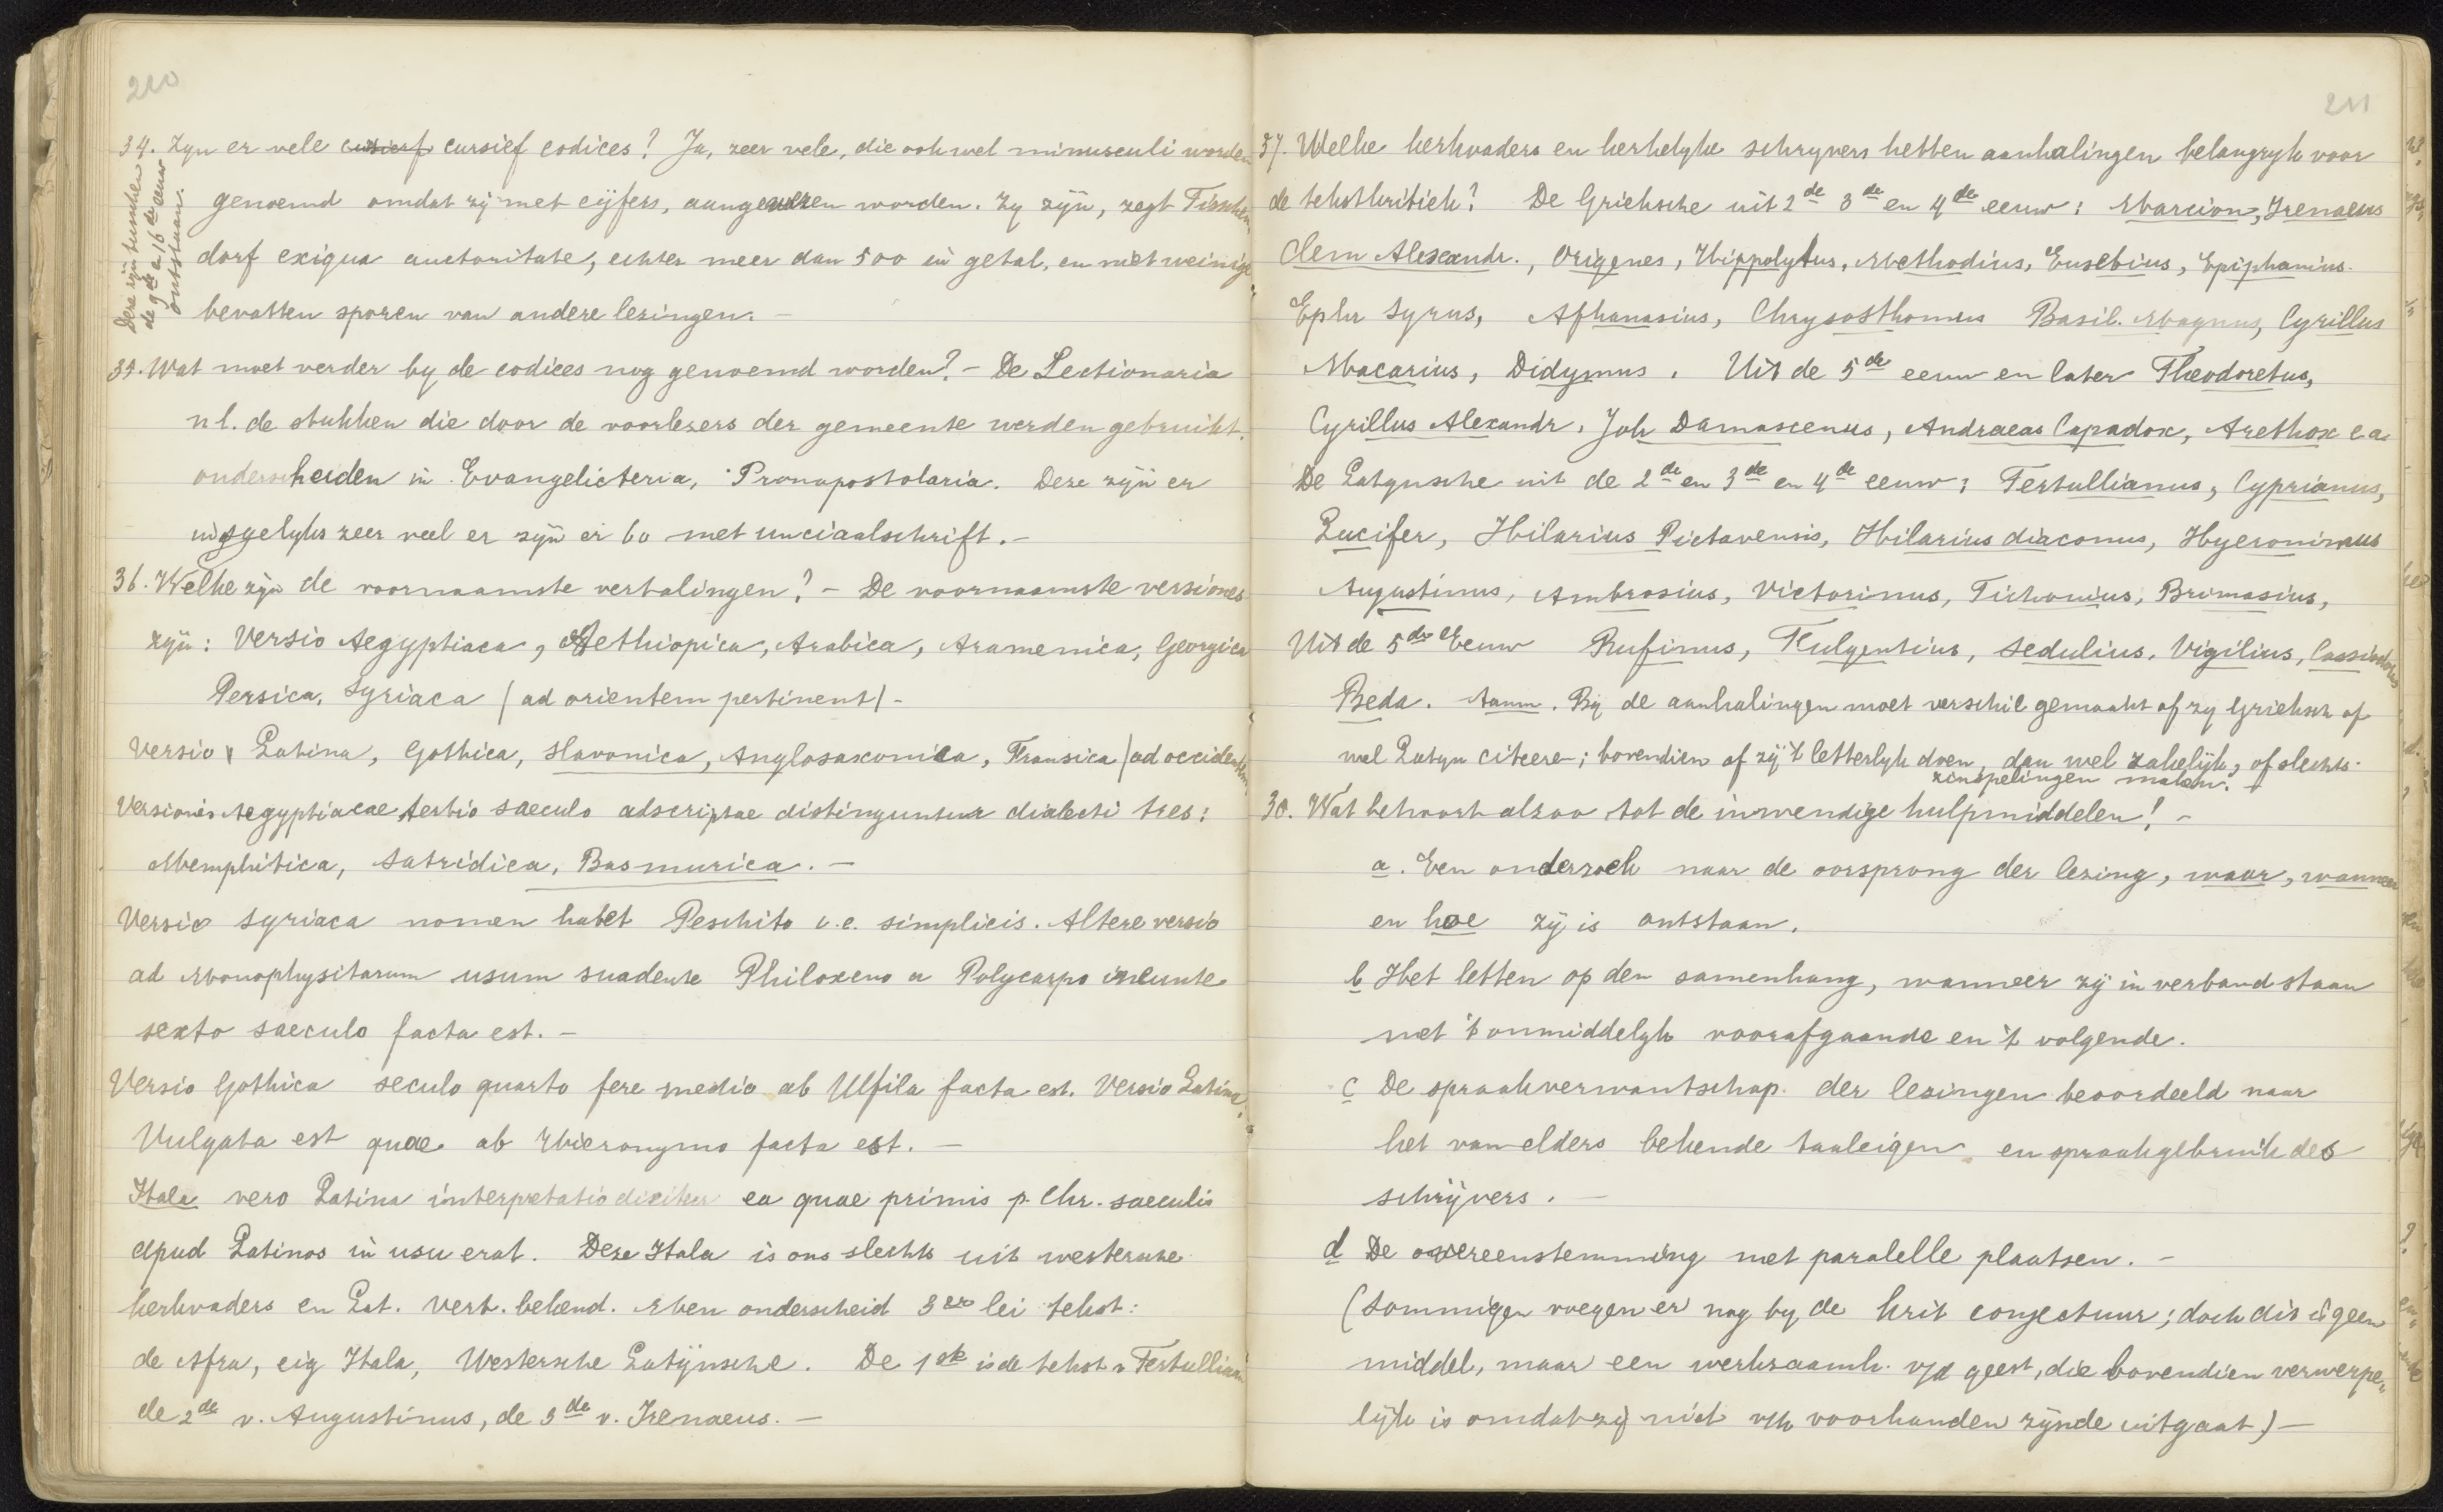 210
34. Zyn er vele cursief cursief codices? Ja, zeer vele, die ook wel minusculi worden
genoemd omdat zij met cijfers, aangewezen worden. Zy zijn, zegt Tischen-
dorf exigua auctoritate, echter meer dan 500 in getal, en niet weinige
bevatten sporen van andere lezingen. –
Deze zijn tusschen
de 9de en 16de eeuw
ontstaan.
35. Wat moet verder by de codices nog genoemd worden? – De Lectionaria
nl. de stukken die door de voorlezers der gemeente werden gebruikt.
onderscheiden in Evangelicteria, Pronapostolaria. Deze zijn er
insgelyks zeer veel er zijn er 60 met unciaalschrift. –
36. Welke zijn de voornaamste vertalingen? – De voornaamste versiones
zijn: Versio Aegyptiaca, Aethiopica, Arabica, Aramenica, Georgica
Persica, Syriaca (ad orientem pertinent) –
Versio Latina, Gothica, Slavonica, Anglosaxonica, Fransica (ad occidentem
Versionis Aegyptiacae tertio saeculo adscriptae distinguntur dialecti tres:
Memphitica, Satridica, Basmurica. –
Versio Syriaca nomen habet Peschito i.e. simplicis. Altere versio
ad Monophysitarum usum suadente Philoxeno a Polycarpo ineunte
sexto saeculo facta est. –
Versio Gothica seculo quarto fere medio ab Ulfila facta est. Versio Latina
Vulgata est quae ab Hieronymo facta est. –
Itala vero Latina interpretatio dicitur ea quae primis p. Chr. saeculis
apud Latinos in usu erat. Deze Itala is ons slechts uit westersche
kerkvaders en Lat. vert. bekend. Men onderscheid 3 erlei tekst:
de Afra, eig Itala, Westersche Latijnsche. De 1ste is de tekst v Tertulliaan
de 2de v. Augustinus, de 3de v. Irenaeus. –
211
37. Welke kerkvaders en kerkelyke schryvers hebben aanhalingen belangryk voor
de tekstkritiek? De Grieksche uit 2de 3de en 4de eeuw: Marcion, Irenaeus
Clem Alexandr., Origenes, Hippolytus, Methodius, Eusebius, Epiphanius.
Ephr Syrus, Athanasius, Chrysosthomus Basil. Magnus, Cyrillus
Macarius, Didymus. Uit de 5de eeuw en later Theodoretus,
Cyrillus Alexandr, Joh Damascenus, Andraeas Capadox, Arethox e.a.
De Latynsche uit de 2de en 3de en 4de eeuw: Tertullianus, Cyprianus,
Lucifer, Hilarius Pictavensis, Hilarius diaconus, Hyeronimus
Augustinus, Ambrosius, Victorinus, Tichonius, Primasius,
Uit de 5de Eeuw Rufinus, Fulgentius, Sedulius, Vigilius, Cassiodorus
Beda. Aanm. Bij de aanhalingen moet verschil gemaakt of zy Grieksch of
wel Latyn citeere; bovendien of zij 't letterlyk doen, dan wel zakelijk, of slechts
zinspelingen maken. –
38. Wat behoort alzoo tot de inwendige hulpmiddelen! –
a. Een onderzoek naar de oorsprong der lezing, waar, wanneer
en hoe zij is ontstaan.
b Het letten op den samenhang, wanneer zij in verband staan
met 't onmiddelyk voorafgaande en 't volgende.
c De spraakverwantschap der lezingen beoordeeld naar
het van elders bekende taaleigen en spraakgebruik des
schrijvers. –
d De overeenstemming met paralelle plaatsen. –
(Sommigen voegen er nog by de krit conjectuur; doch dit is geen
middel, maar een werkzaamh. v/d geest, die bovendien verwerpe-
lijk is omdat zij niet v/h voorhanden zijnde uitgaat) –